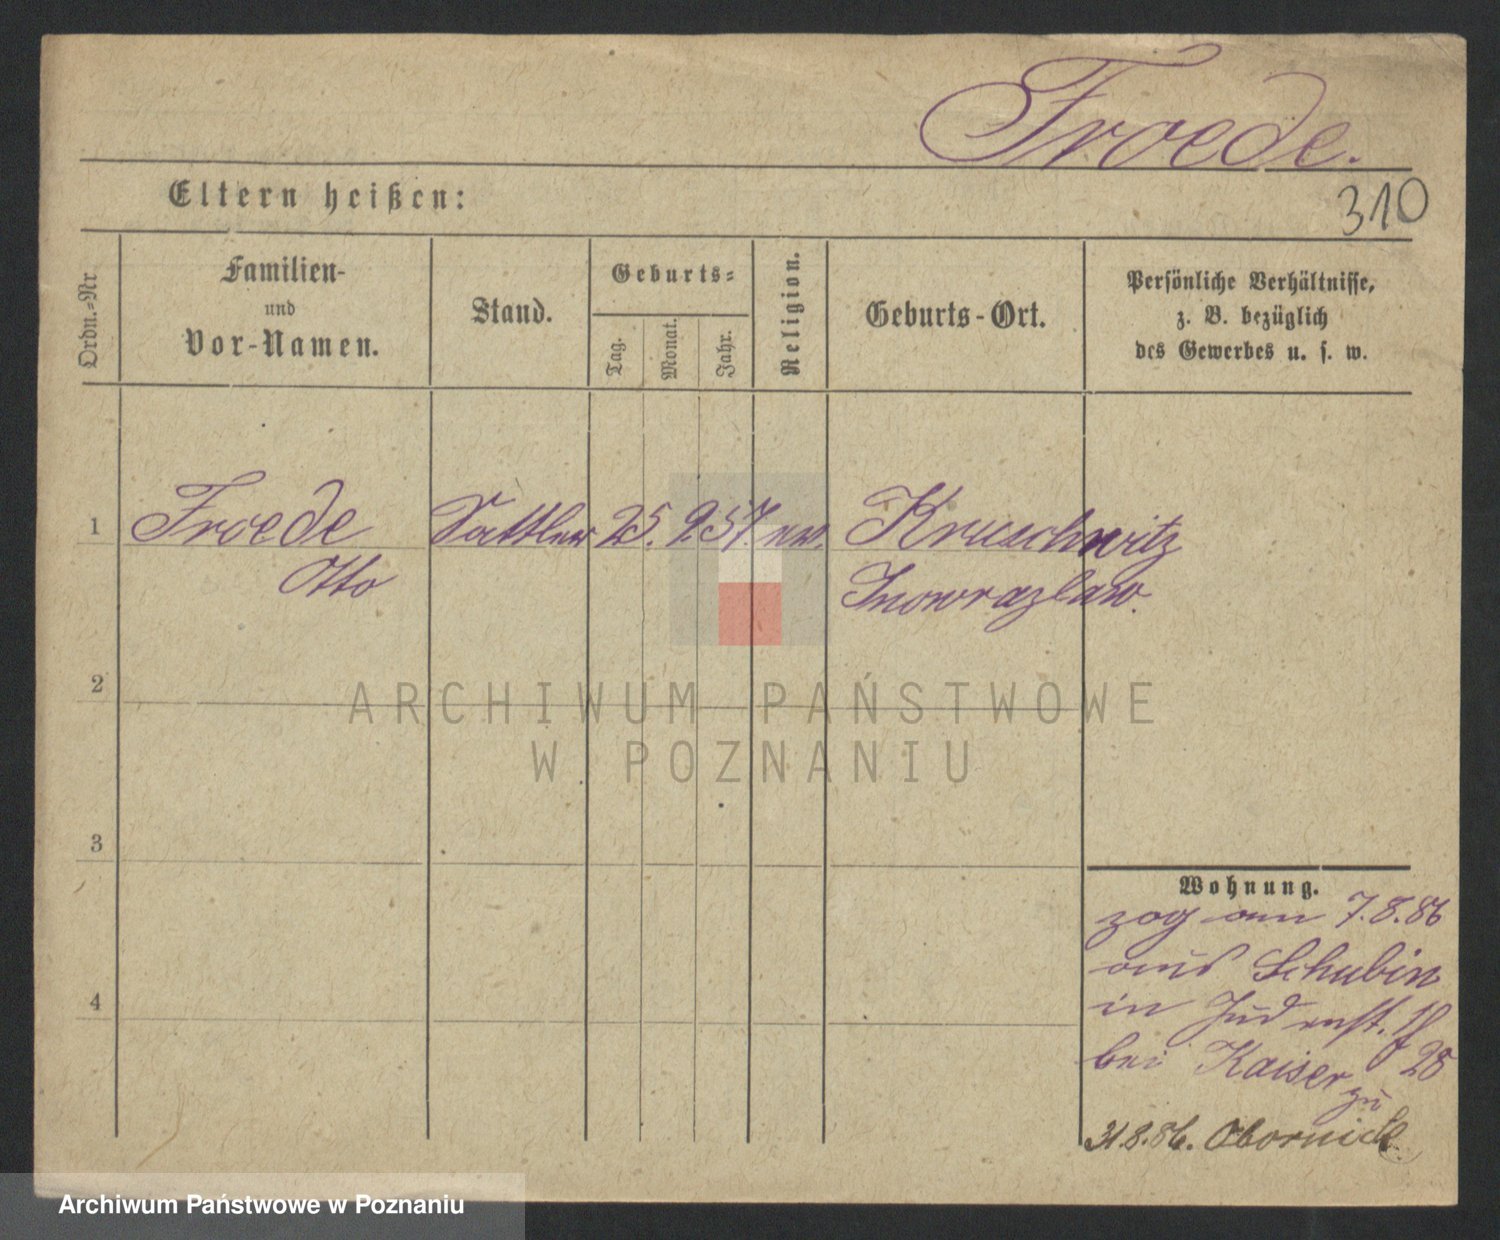 Froede.
310
Eltern heißen:
Ordn.-Nr
Familien-
und
Vor-Namen.
Stand.
Geburts-
Tag.
Monat.
Jahr.
Religion.
Geburts-Ort.
Persönliche Verhältnisse,
z. B. bezüglich
des Gewerbes u. s. w.
1
Froede Sattler 25. 9. 57. ew. Kruschwitz
Otto Inowrazlaw.
2
ARCHIWUM PAŃSTWOWE
W POZNANIU
3
Wohnung.
zog am 7.8.86
aus Schubin
in Judenst.
bei Kaiser 28
zu
31.8.86. Obornick
4
Archiwum Państwowe w Poznaniu